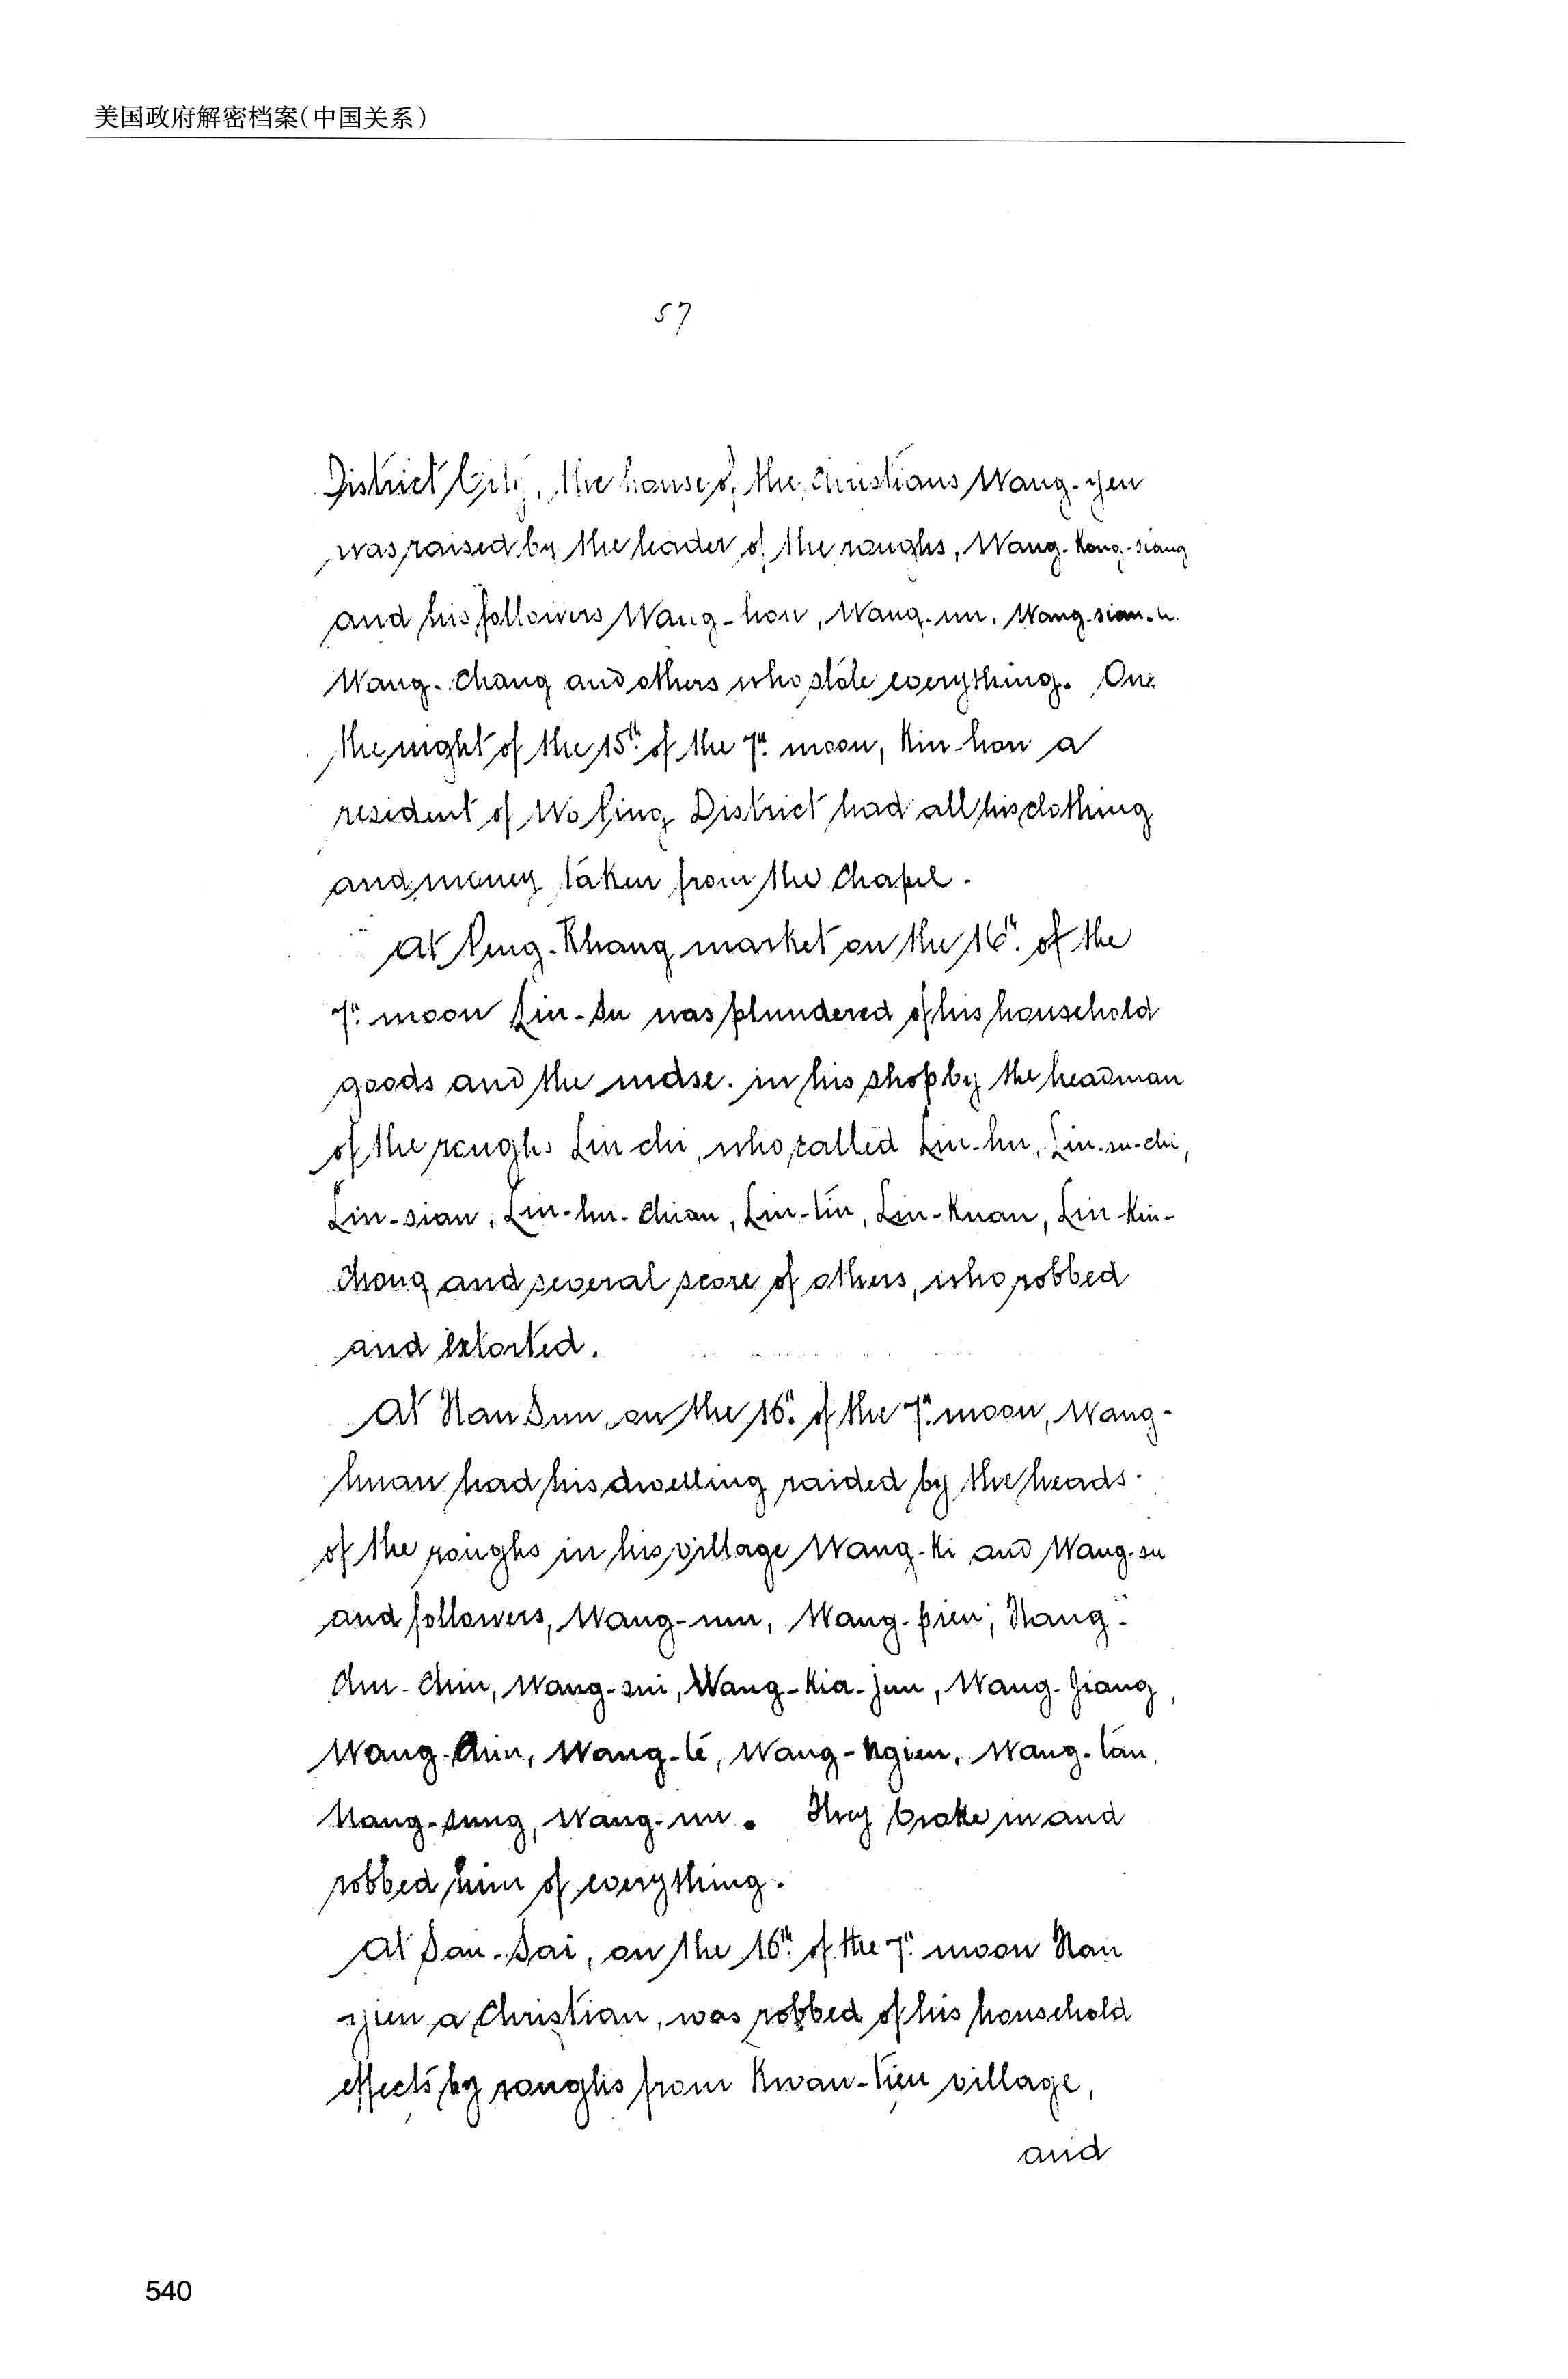 美国政府解密档案(中国关系)
57
District City, the house of the Christians Wang-yen
was raised by the leader of the roughs, Wang-Kong-siang
and his followers Wang-hou, Wang-un, Wang-sian-
Wang-Chang and others who stole everything. On
the night of the 15th. of the 7th. moon, Kin-hou a
resident of Wo Ping District had all his clothing
and money taken from the Chapel.
At Peng-Khang market on the 16th. of the
7th. moon Lin-Su was plundered of his household
goods and the mdse. in his shop by the headman
of the roughs Lin chi, who called Lin-hu, Lin-su-chi,
Lin-sian, Lin-hu-Chian, Lin-tin, Lin-Kuan, Lin-Kin-
Chong and several score of others, who robbed
and extorted.
At Nan Sun, on the 16th. of the 7th. moon, Wang-
huan had his dwelling raided by the heads
of the roughs in his village Wang-Ki and Wang-su
and followers, Wang-mu, Wang-pien, Wang-
Chu-Chin, Wang-sui, Wang-Kia-jun, Wang-Jiang,
Wang-Chin, Wang-te, Wang-Ngien, Wang-tan,
Wang-sung, Wang-un. They broke in and
robbed him of everything.
At San-Sai, on the 16th. of the 7th. moon Nan
yien a Christian, was robbed of his household
effects by roughs from Kwan-tien village,
and
540